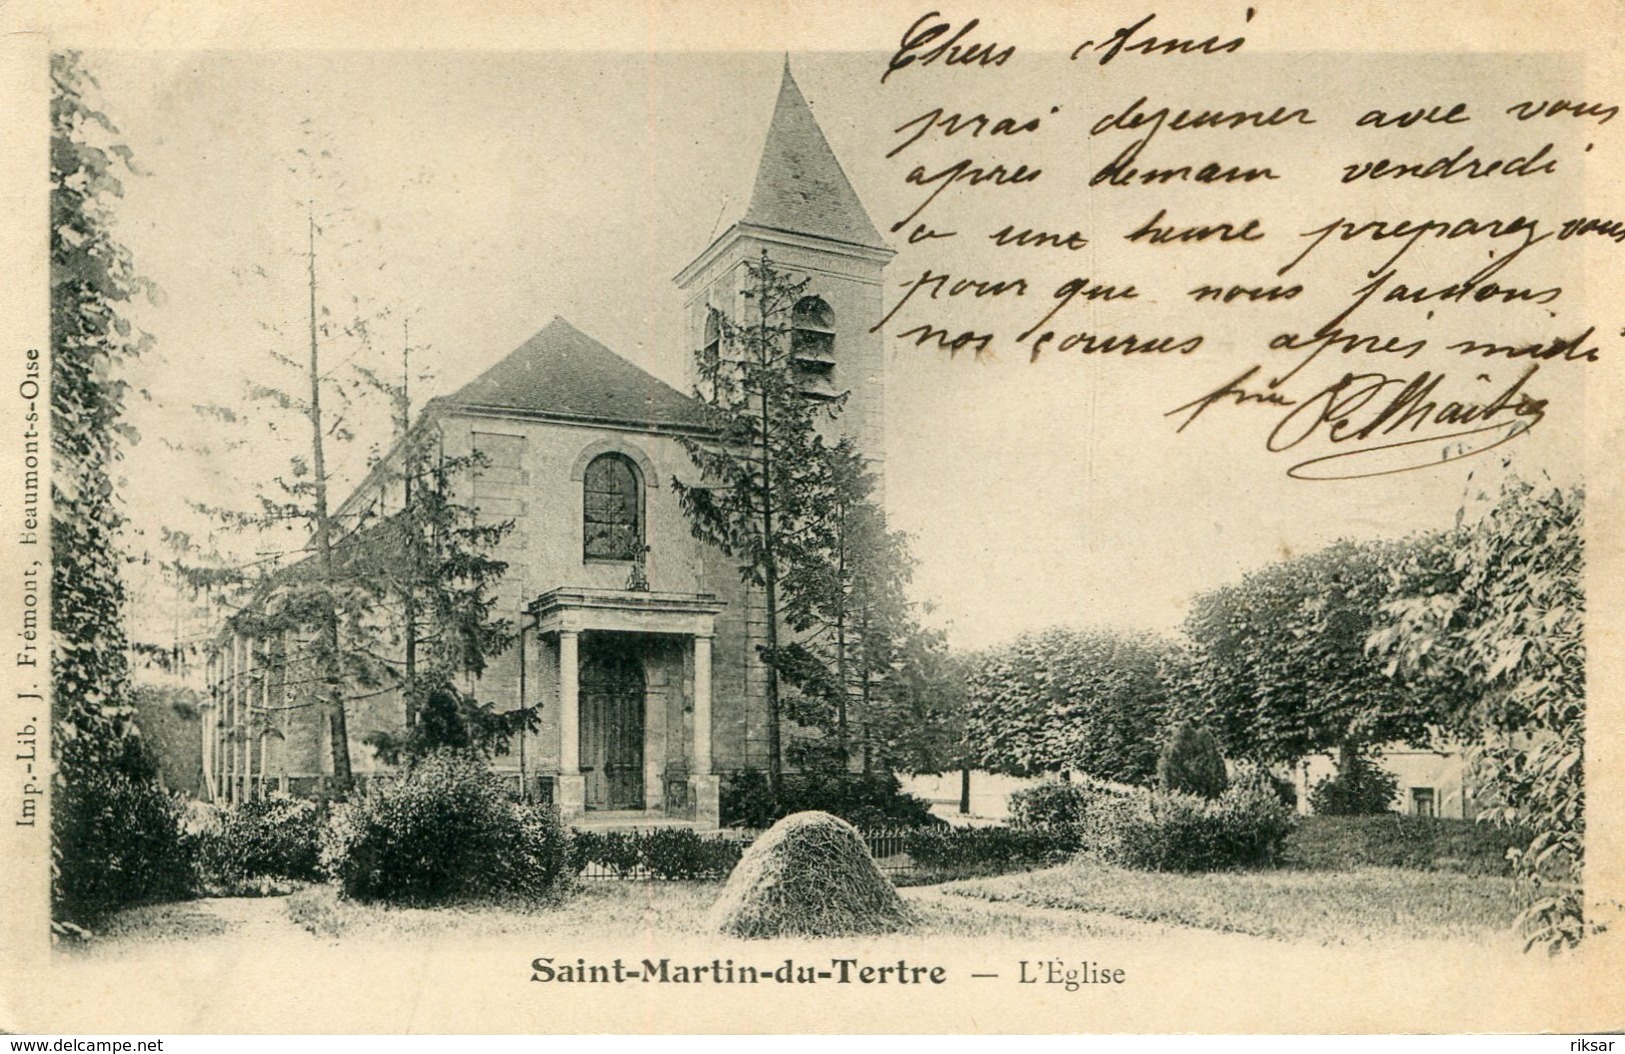 Chers Amis
prai dejeuner avec vous
après demain vendredi
a une heure preparez vous
pour que nous faisions
nos courses après midi
Imp.-Lib. J. Frémont, Beaumont-s-Oise
Saint-Martin-du-Tertre — L'Église
www.delcampe.net
riksar